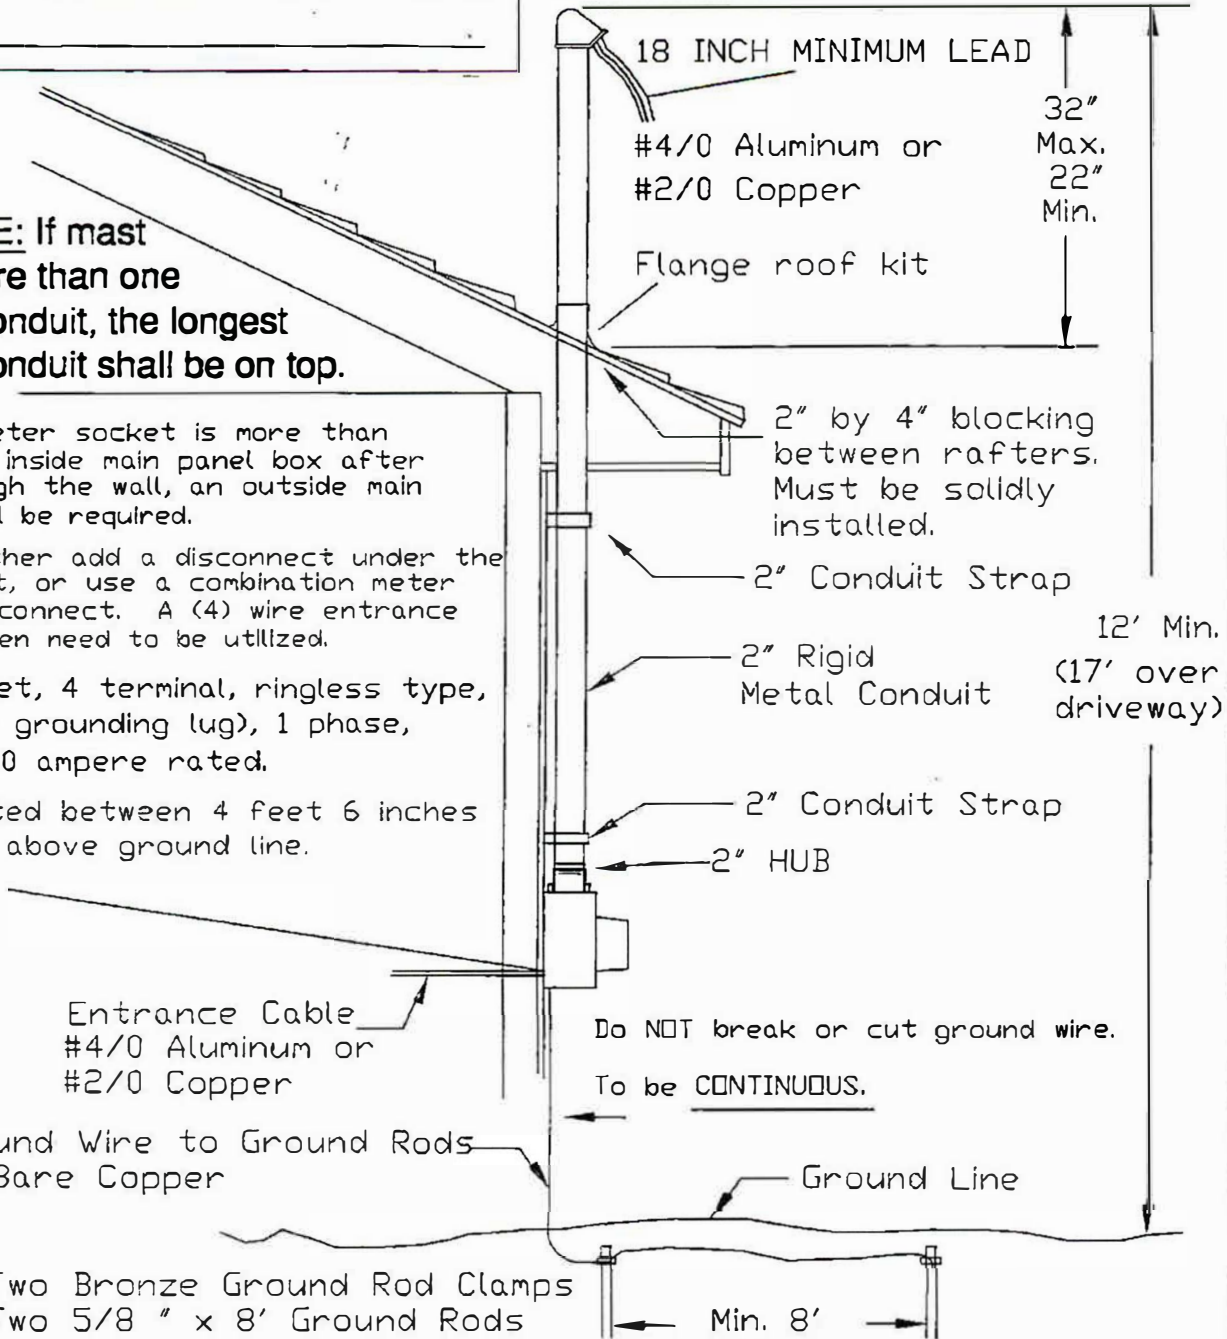 18 INCH MINIMUM LEAD
#4/0 Aluminum or
#2/0 Copper
32"
Max.
22"
Min.
Flange roof kit
E: If mast
re than one
onduit, the longest
onduit shall be on top.
eter socket is more than
inside main panel box after
gh the wall, an outside main
l be required.
her add a disconnect under the
t, or use a combination meter
connect. A (4) wire entrance
en need to be utilized.
et, 4 terminal, ringless type,
grounding lug), 1 phase,
0 ampere rated.
ted between 4 feet 6 inches
above ground line.
2" by 4" blocking
between rafters.
Must be solidly
installed.
2" Conduit Strap
12' Min.
(17' over
driveway)
2" Rigid
Metal Conduit
2" Conduit Strap
2" HUB
Entrance Cable
#4/0 Aluminum or
#2/0 Copper
Do NOT break or cut ground wire.
To be CONTINUOUS.
und Wire to Ground Rods
Bare Copper
Ground Line
Two Bronze Ground Rod Clamps
Two 5/8 " x 8' Ground Rods
Min. 8'